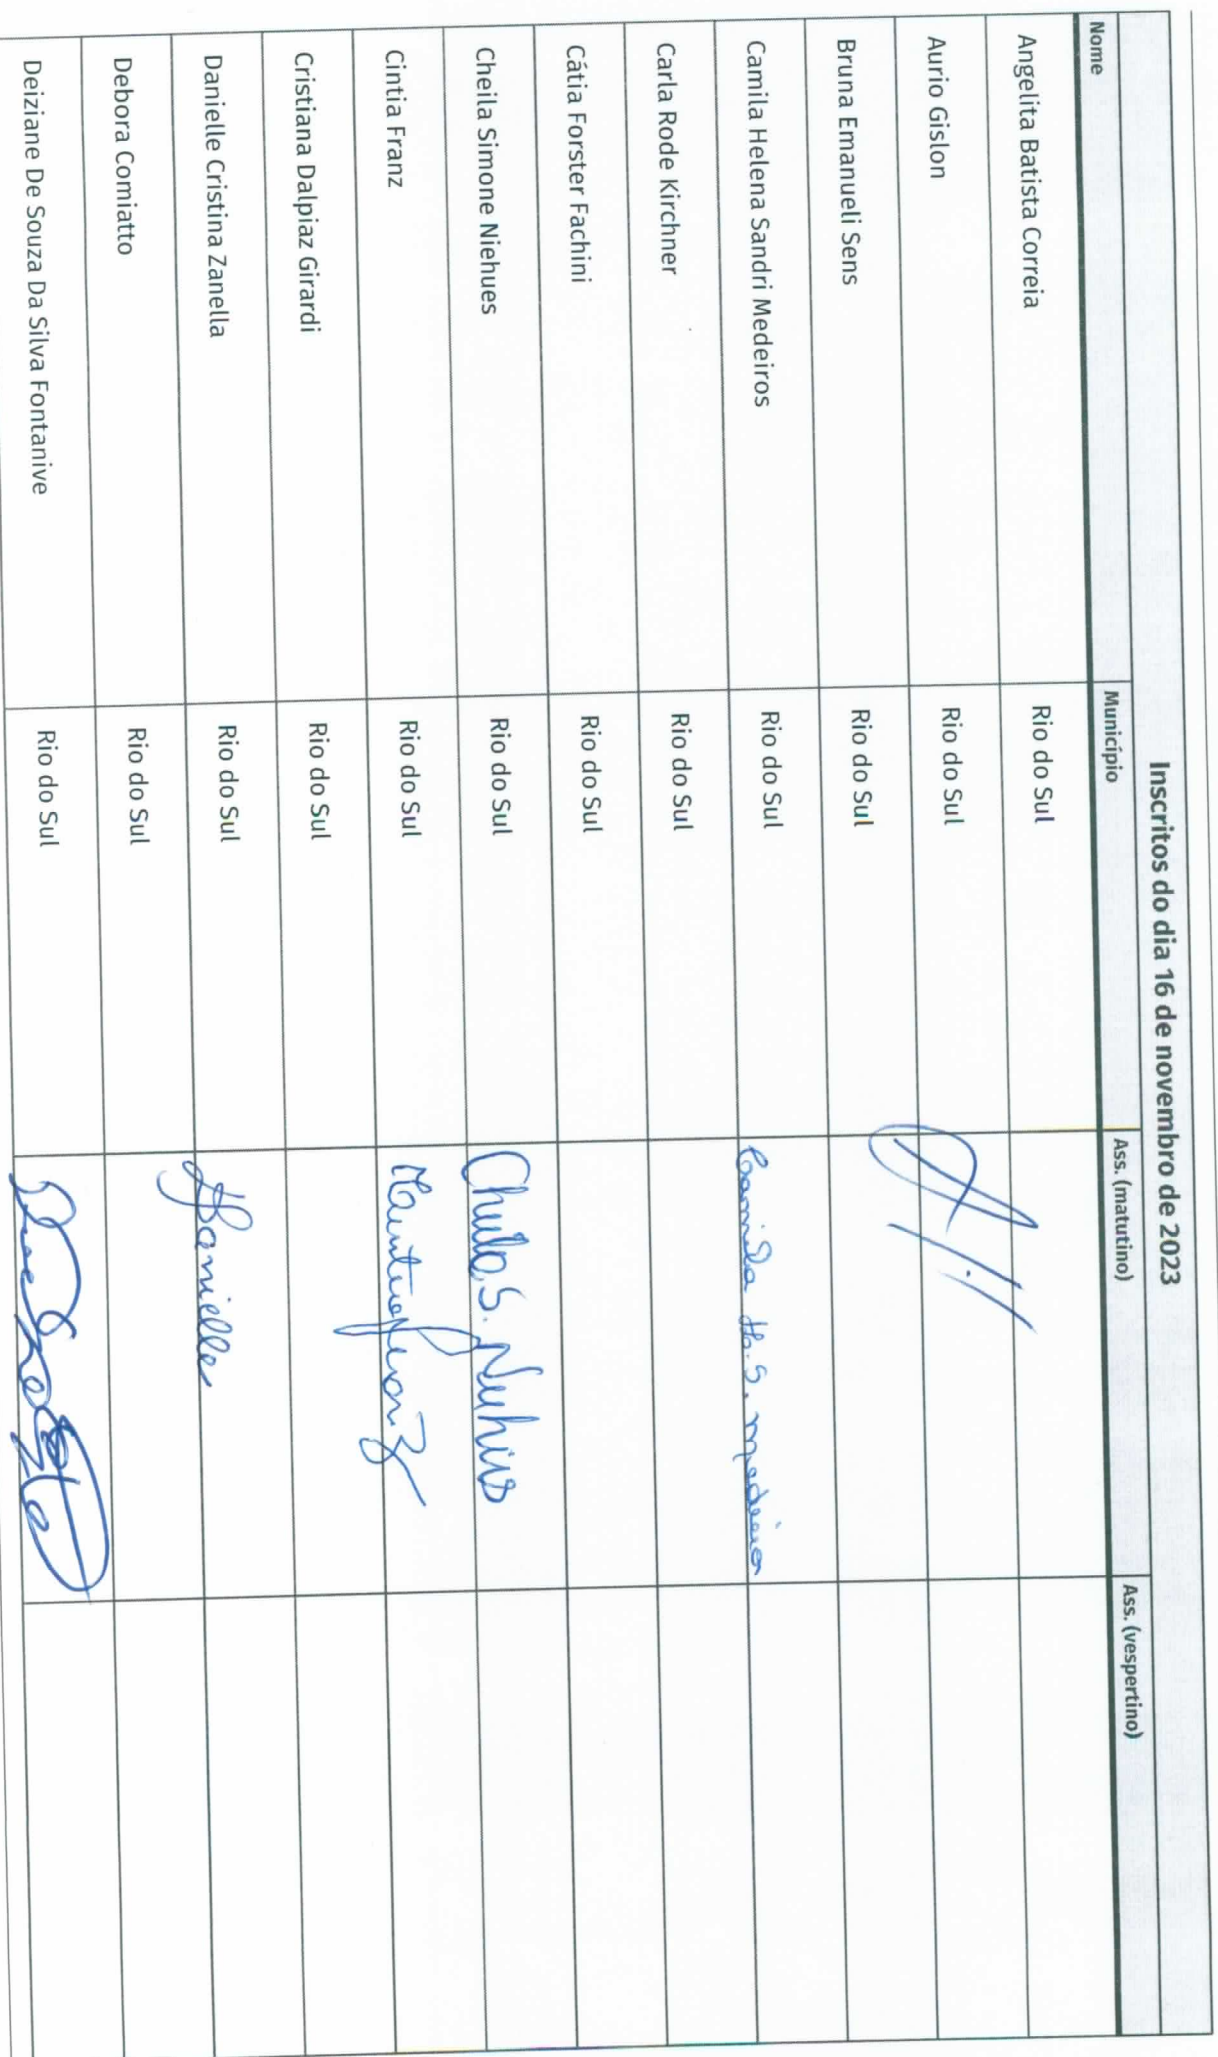 Inscritos do dia 16 de novembro de 2023
Nome Município Ass. (matutino) Ass. (vespertino)
Angelita Batista Correia Rio do Sul
Aurio Gislon Rio do Sul
Bruna Emanueli Sens Rio do Sul
Camila Helena Sandri Medeiros Rio do Sul Camila H. S. Medeiros
Carla Rode Kirchner Rio do Sul
Cátia Forster Fachini Rio do Sul
Cheila Simone Niehues Rio do Sul Cheila S. Niehues
Cintia Franz Rio do Sul Cintia Franz
Cristiana Dalpiaz Girardi Rio do Sul
Danielle Cristina Zanella Rio do Sul Danielle
Debora Comiatto Rio do Sul
Deiziane De Souza Da Silva Fontanive Rio do Sul